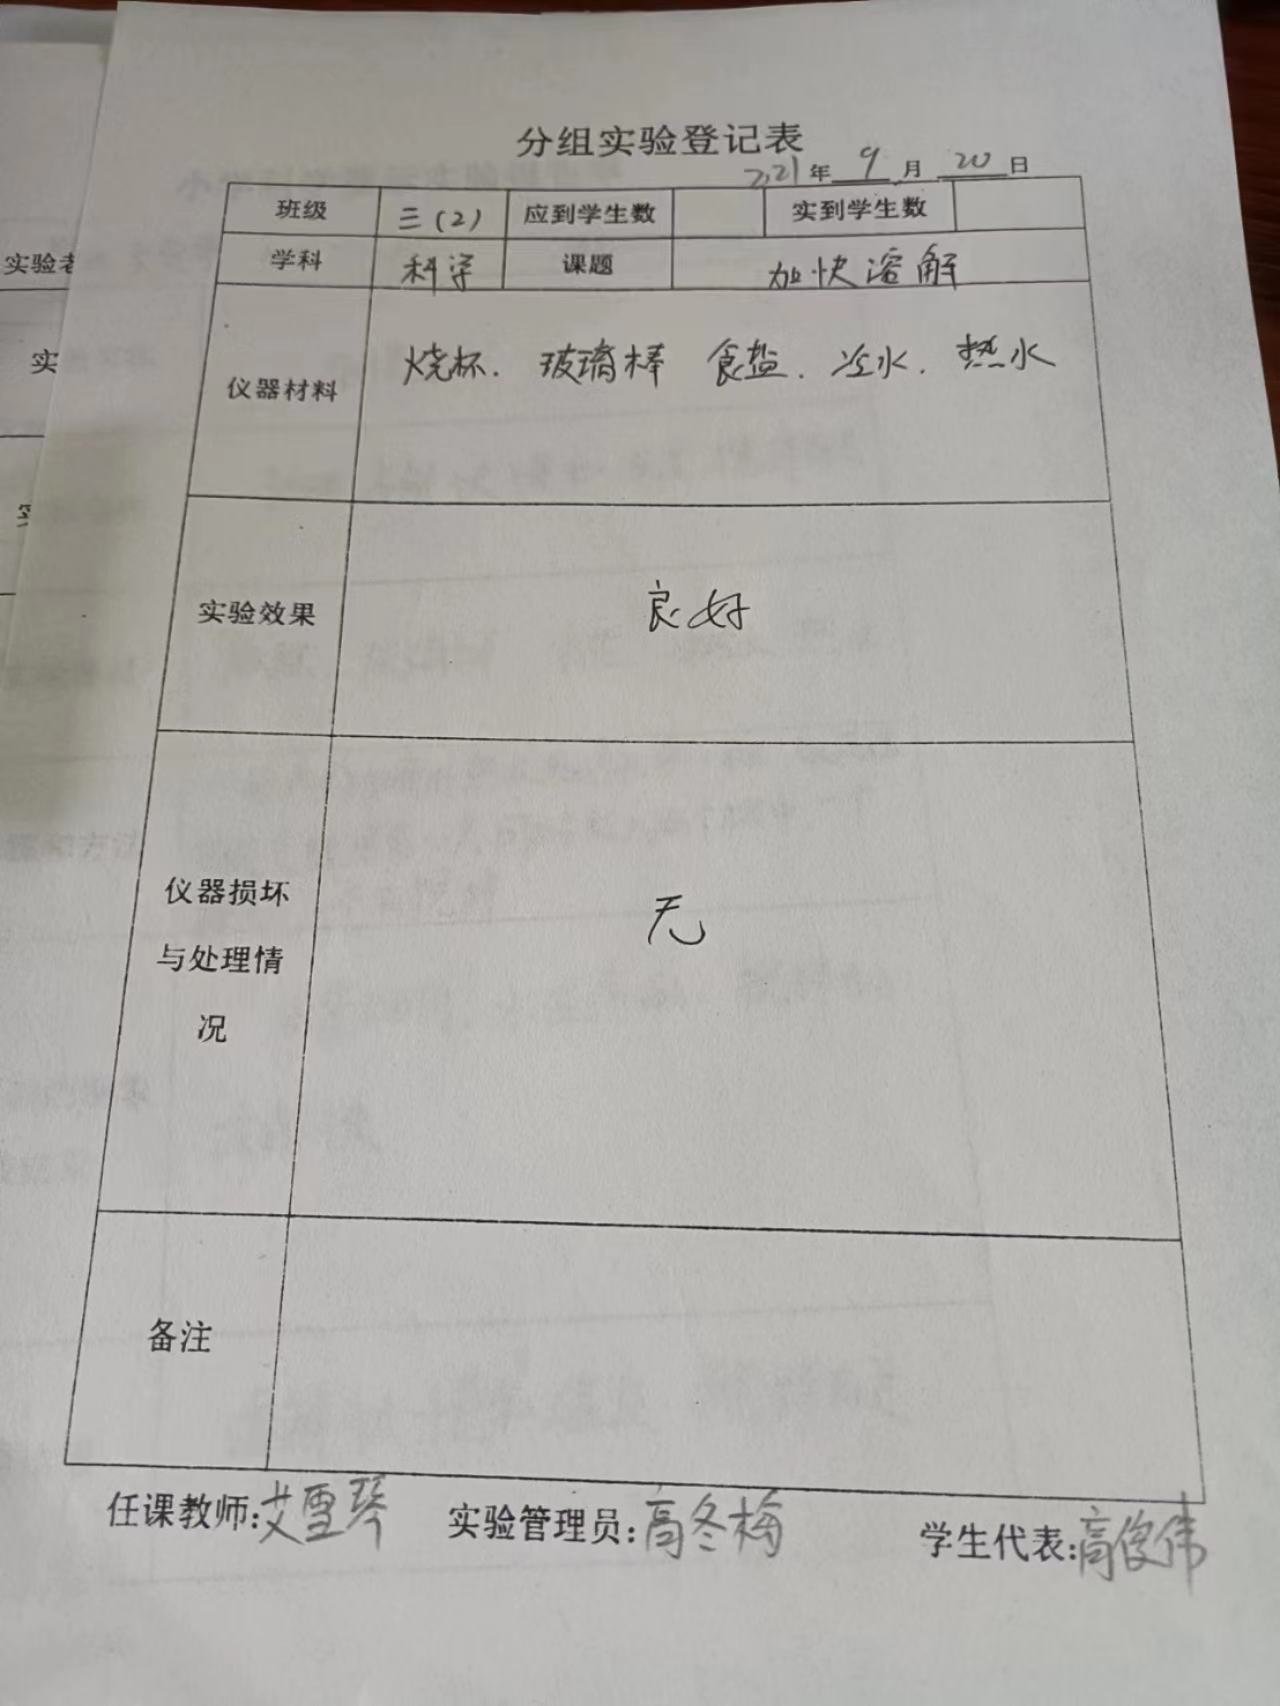 分组实验登记表
2021年 9 月 20 日
班级 三(2) 应到学生数 实到学生数
学科 科学 课题 加快溶解
仪器材料 烧杯. 玻璃棒 食盐. 冷水. 热水
实验效果 良好
仪器损坏
与处理情
况
无
备注
任课教师:艾雪琴 实验管理员:高冬梅 学生代表:高俊伟
实验者
实